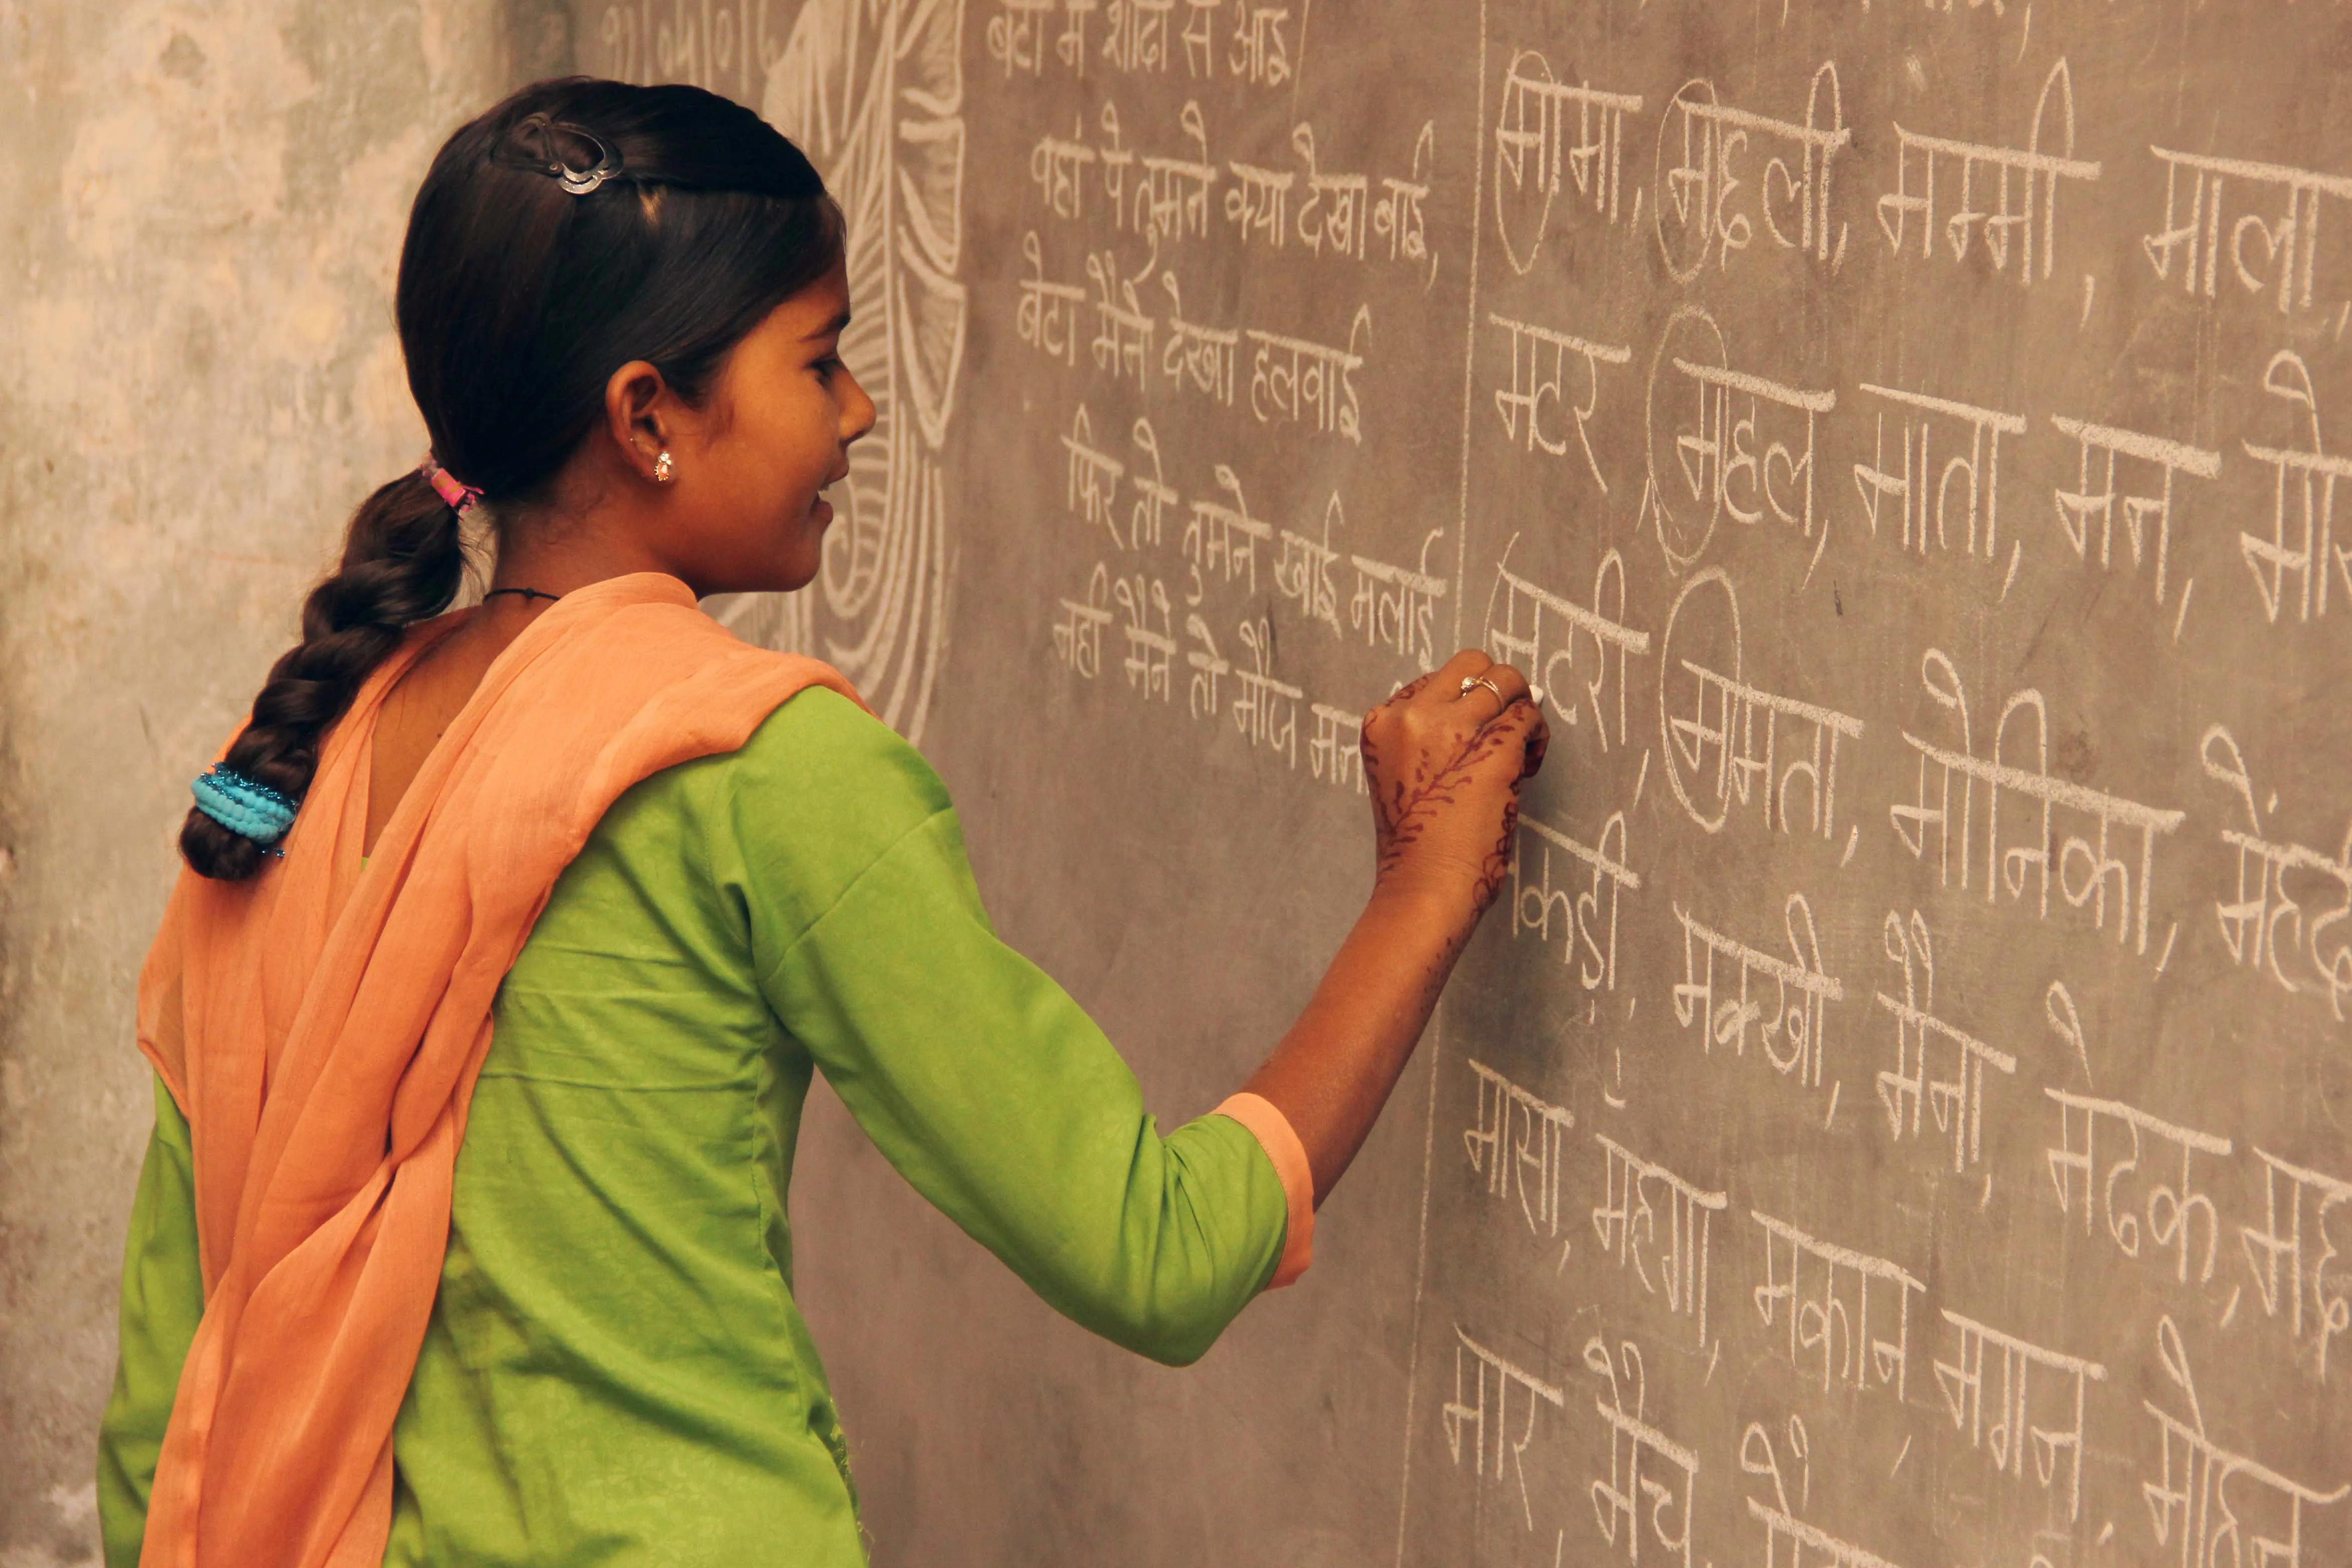 बेटा मैं शादी से आई
वहां पे तुमने क्या देखा बाई,
बेटा मैंने देखा हलवाई
फिर तो तुमने खाई मलाई
नहीं मैंने तो मौज
मामा, मछली, मम्मी, माला,
मटर, महल, माता, मन,
मटरी, ममता, मोनिका,
मक्खी, मैना, मेढक,
मासी, महंगा, मकान, मगन, मोहन
मोर, मैच,